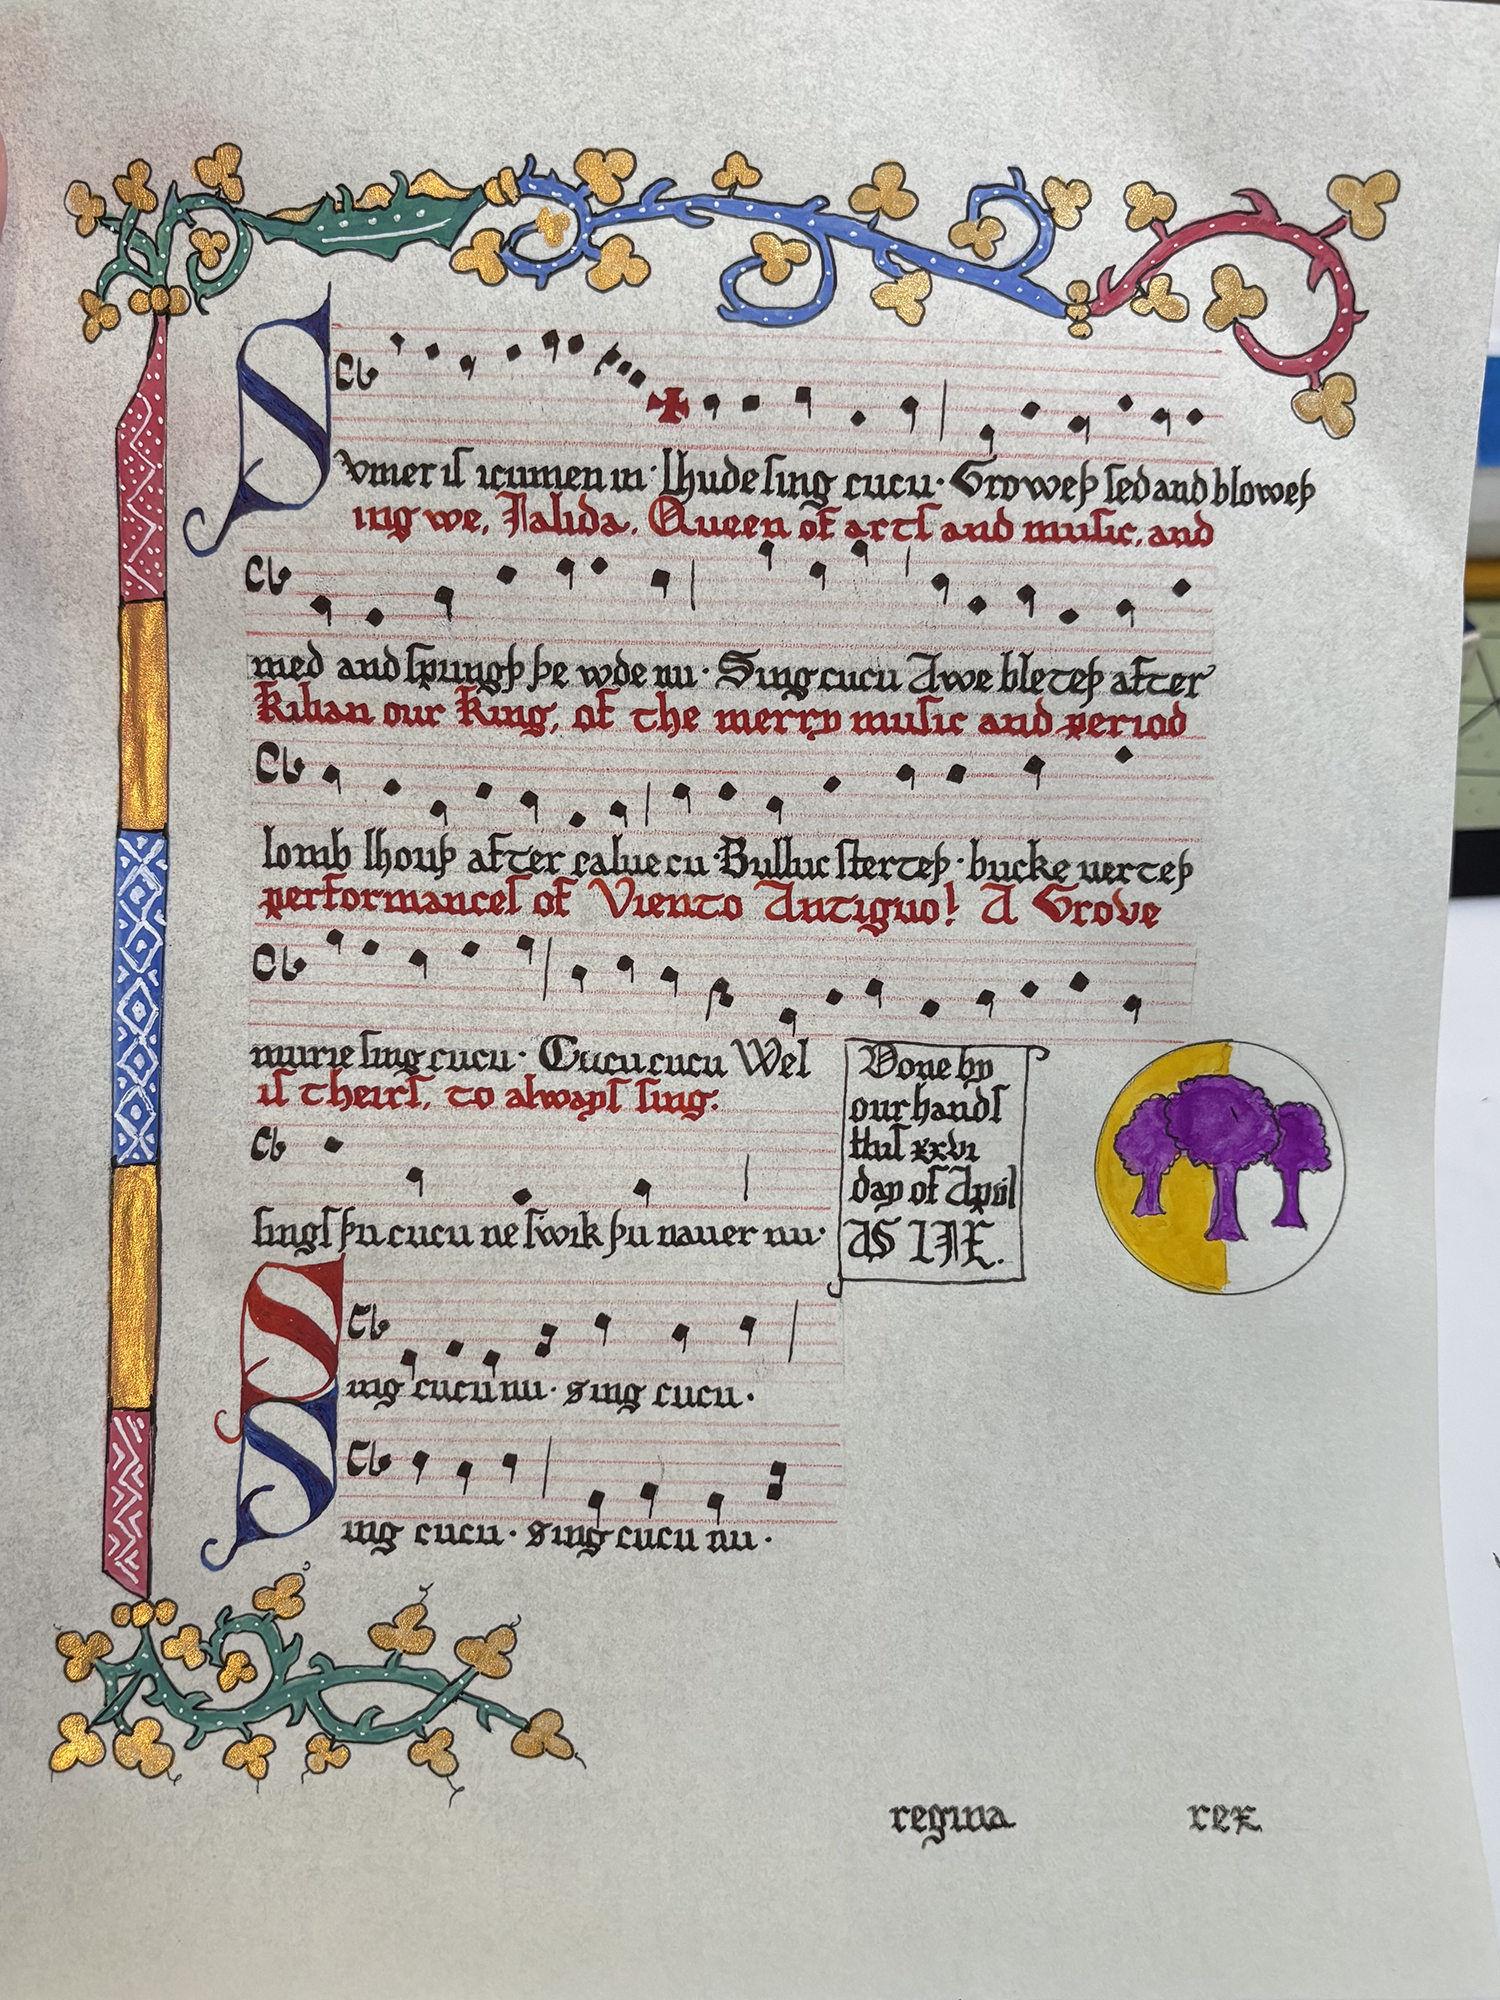 Svmer iſ icumen in· lhude ſing cucu· Groweþ ſed and bloweþ
ing we, Jalida, Queen of artſ and muſic, and
med and ſpringþ þe wde nu· Sing cucu Awe bleteþ after
Kilian our King, of the merry muſic and period
lomb lhouþ after calue cu· Bulluc ſterteþ· bucke uerteþ
performanceſ of Viento Antiguo! A Grove
murie ſing cucu· Cucu cucu Wel
iſ theirſ, to alwayſ ſing.
ſingſ þu cucu ne ſwik þu nauer nu·
Done by
our handſ
thiſ xxvi
day of April
AS LIX.
Sing cucu nu· sing cucu·
Sing cucu· sing cucu nu·
regina rex